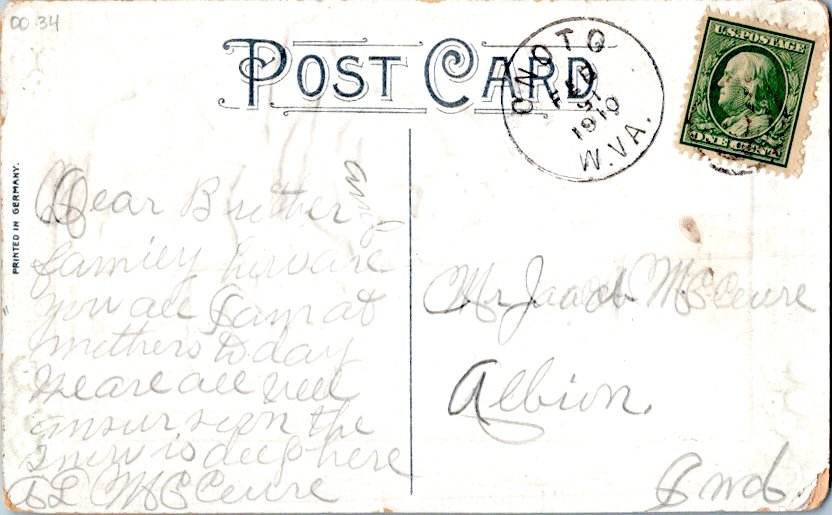 00 34
POST CARD
ONOTO
FEB
1910
W.VA.
U.S. POSTAGE
ONE CENT
PRINTED IN GERMANY.
Dear Brother and
family how are
you all I am at
mothers to day
we are all well
answer soon the
snow is deep here
A L McClure
Mr Jacob McClure
Albion.
Ind.